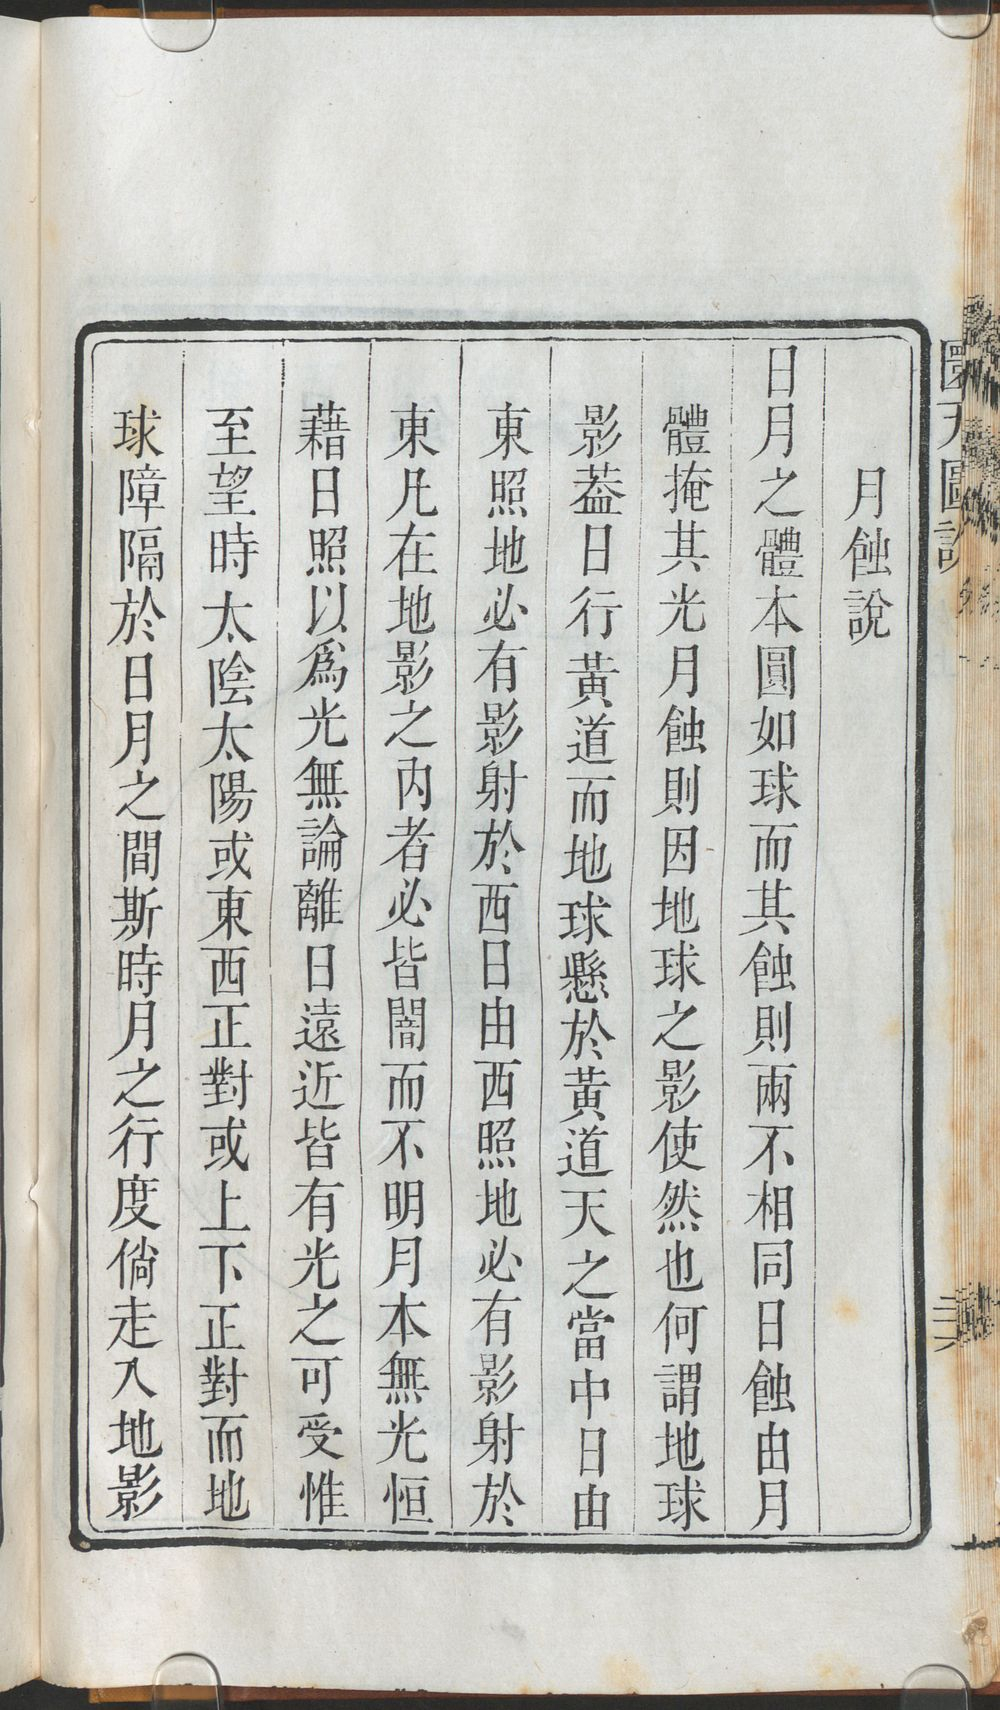 月蝕說
日月之體本圓如球而其蝕則兩不相同日蝕由月
體掩其光月蝕則因地球之影使然也何謂地球
影葢日行黃道而地球懸於黃道天之當中日由
東照地必有影射於西日由西照地必有影射於
東凡在地影之內者必皆闇而不明月本無光恒
藉日照以爲光無論離日遠近皆有光之可受惟
至望時太陰太陽或東西正對或上下正對而地
球障隔於日月之間斯時月之行度倘走入地影